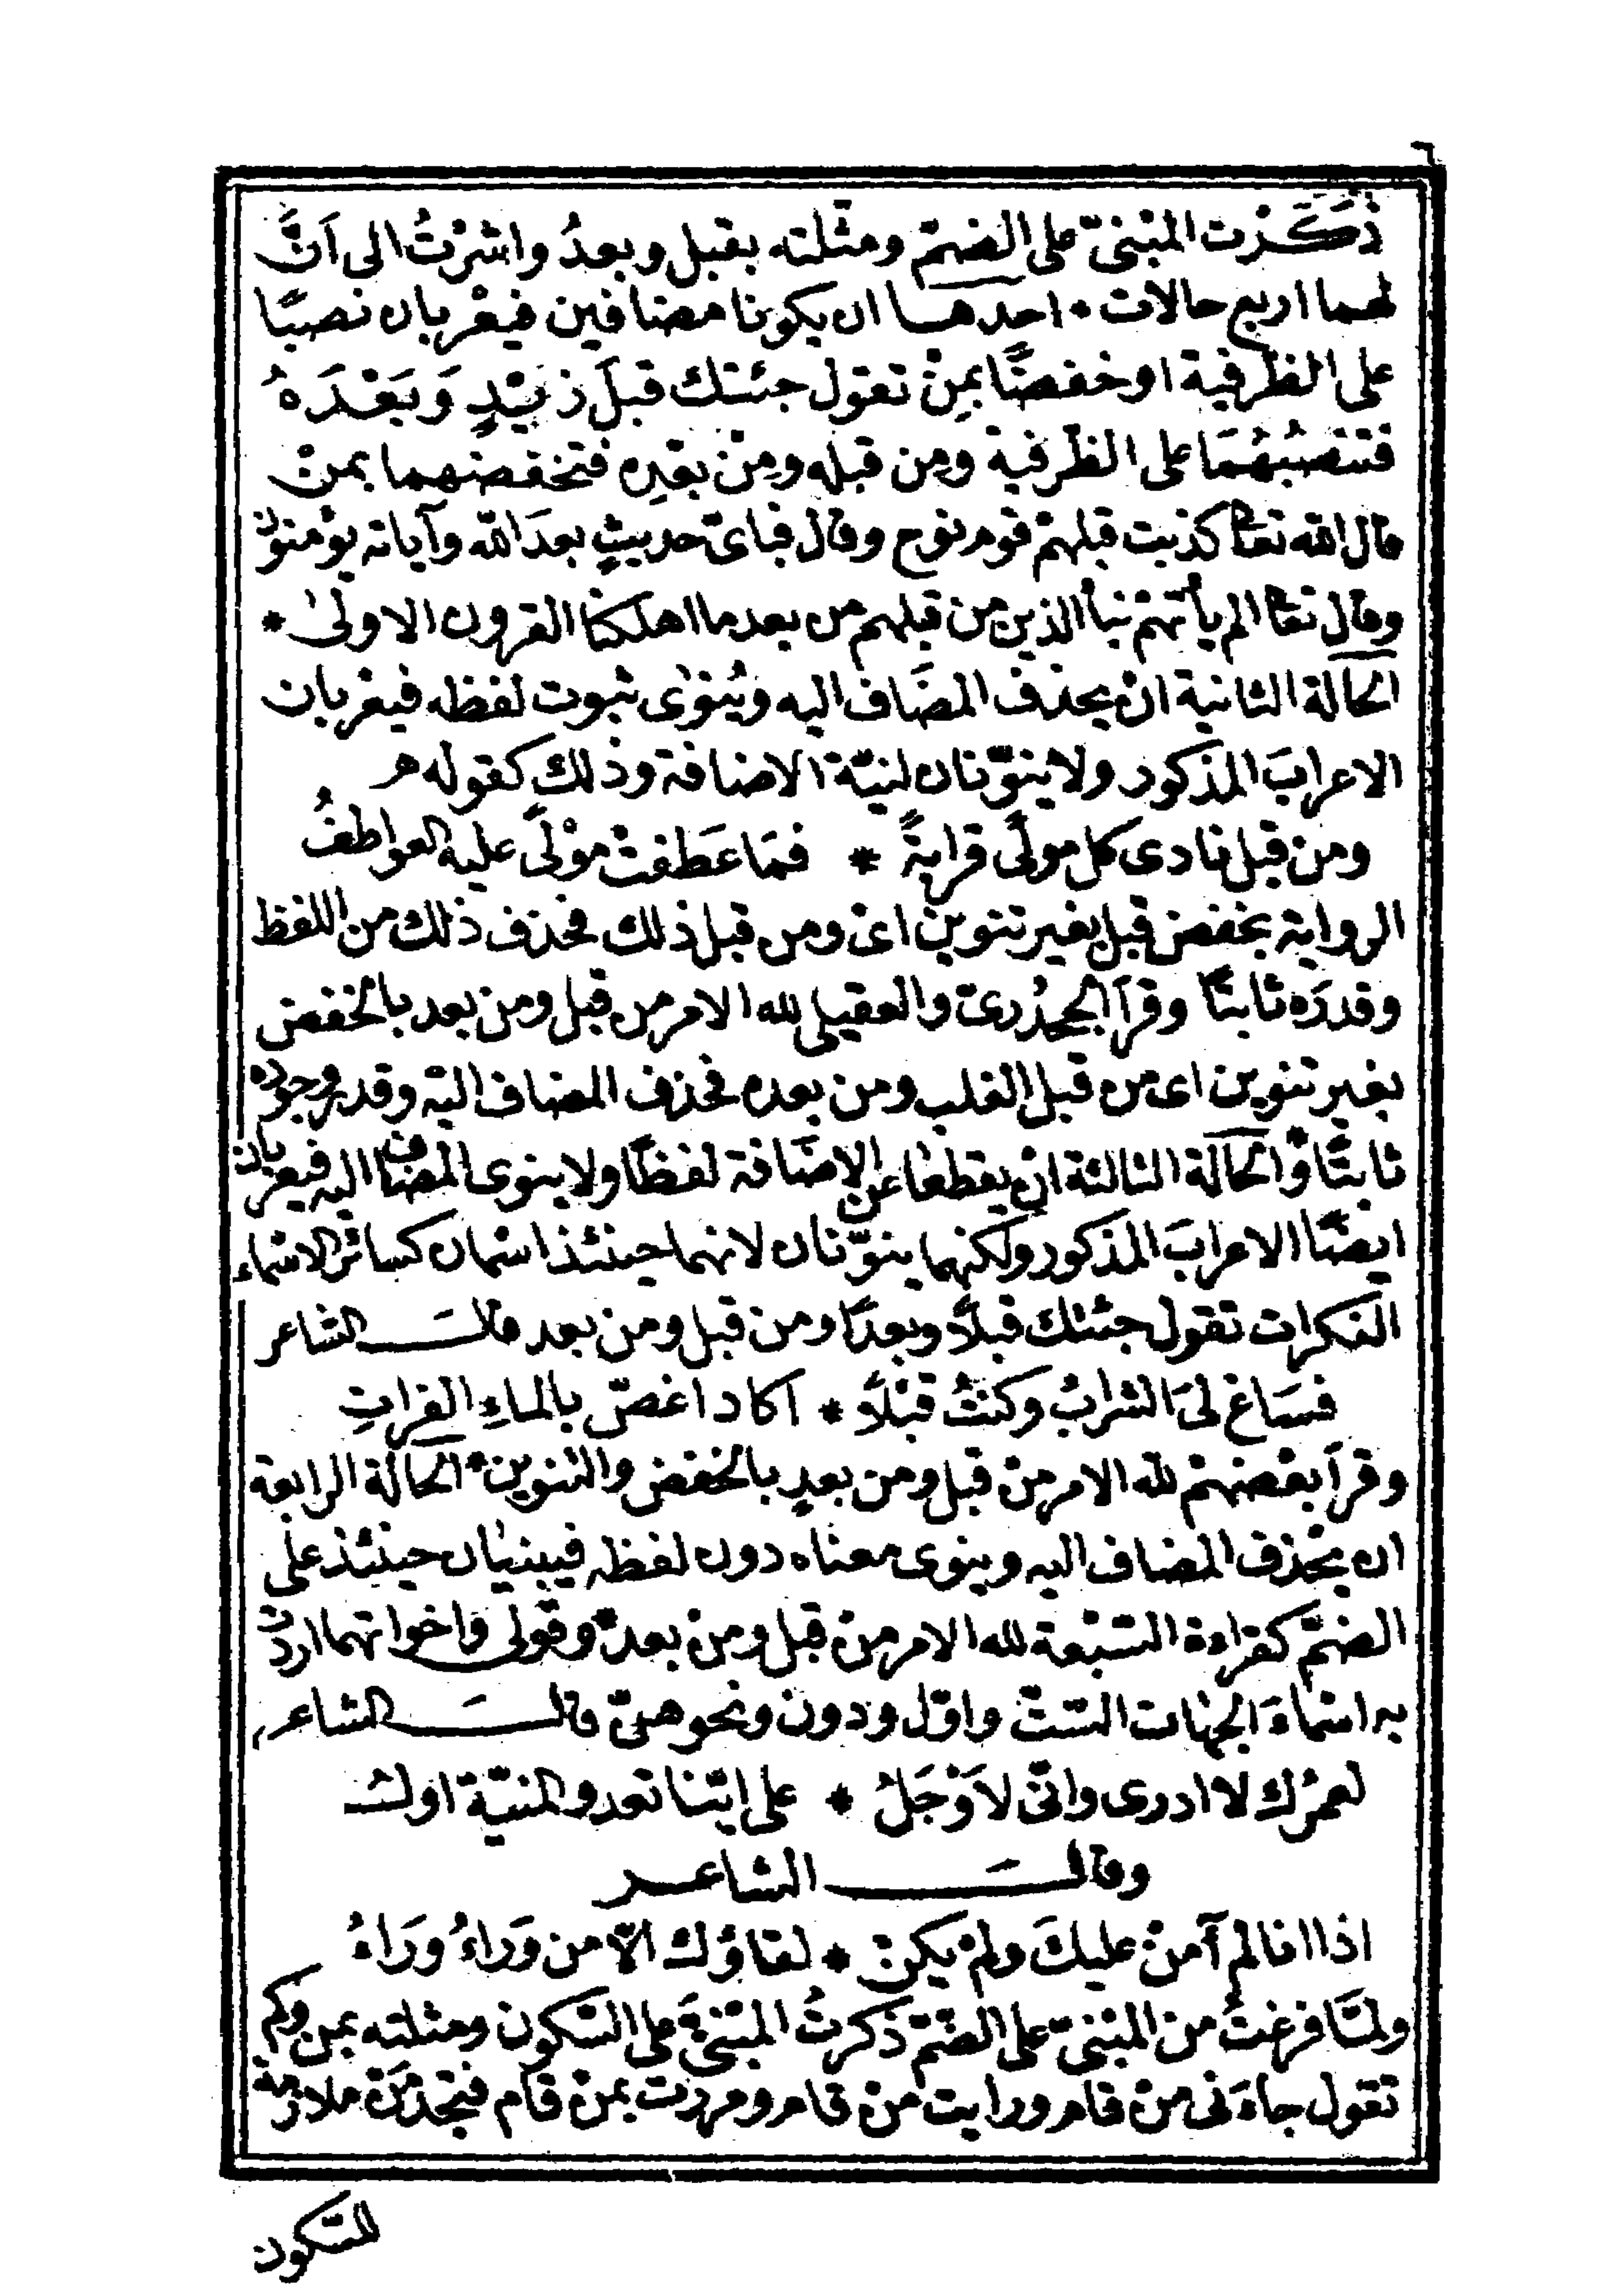 ٦
ذَكَرْت المبْنىّ على الضمّ ومثلته بقبل وبعدُ واشرْتُ الى اَنَّ
لهما اربع حالات * احدها ان يكونا مضافين فيعْربان نصبًا
على الظرفية او خفضًا بمِنْ تقول جئتك قبلَ زيْدٍ وَبَعْدَهُ
فتنصبُهُمَا على الظرفية ومن قبله ومِنْ بعْدِه فتخفضهما بمنْ
قال الله تعا كذبت قبلهمْ قوم نوح وقال فباىّ حديثٍ بعدَ الله وآياته يؤمنون
وقال تعا الم يأتهمْ نبأ الذين من قبلهم من بعد ما اهلكنا القرون الاولىٰ *
الحالة الثانية انْ يحذف المضَاف اليه ويُنوٰى ثبوت لفظه فيعْربان
الاعرابَ المذكور ولا ينوّنان لنيّة الاضافة وذلك كقوله
ومن قبل نادى كل مولًى قرابةً * فمَا عَطفتْ موْلًى عليه العواطفُ
الرواية بخفض قبل بغير تنوين اىْ ومن قبل ذلك فحذف ذلك من اللفظ
وقدرَه ثابتًا وقرأ الجحدُرىّ والعقيلى لله الامر من قبل ومن بعد بالخفض
بغير تنوين اى من قبل الغلب ومن بعده فحذف المضاف اليْه وقدر وجوده
ثابتًا * والحالة الثالثة انْ يقطعا عن الاضَافة لفظًا ولا ينوى المضاف اليه فيعربان
ايضًا الاعرابَ المذكور ولكنهما ينوّنان لانهما حينئذ اسمان كسائر الاسْماء
النكرات تقول جئتك قبلاً وبعدًا ومن قبل ومن بعد قالَ الشاعر
فسَاغ لىَ الشرابُ وكنتُ قبْلاً * اكاد اغصّ بالماءِ الفراتِ
وقرأ بعْضهمْ لله الامر منْ قبل ومن بعدٍ بالخفض والتنوين * الحالة الرابعة
ان يحْذف المضاف اليه وينوى معناه دون لفظه فيبنيان حينئذ على
الضمّ كقراءة السّبْعة لله الامر منْ قبل ومنْ بعد * وقولى واخواتهما اردت
به اسْماءَ الجهات السّتّ واوّل ودون ونحوهنّ قالَ الشاعر
لعمرُك لا ادرى وانّى لاَوْجَلُ * على ايّنا تعدو المنيّة اولُ
وقالَ الشاعر
اذا انا لم آمنْ عليكَ ولم يكنْ * لقاؤك الاّ من وَراءُ ورَاءُ
ولمّا فرغتُ من المبْنىّ على الضّمّ ذكرتُ المبْنىَّ على السّكون ومثلته بمن وكم
تقول جاءَنى منْ قام ورايت منْ قام ومررت بمنْ قام فتجد منْ ملازمة
للسّكون